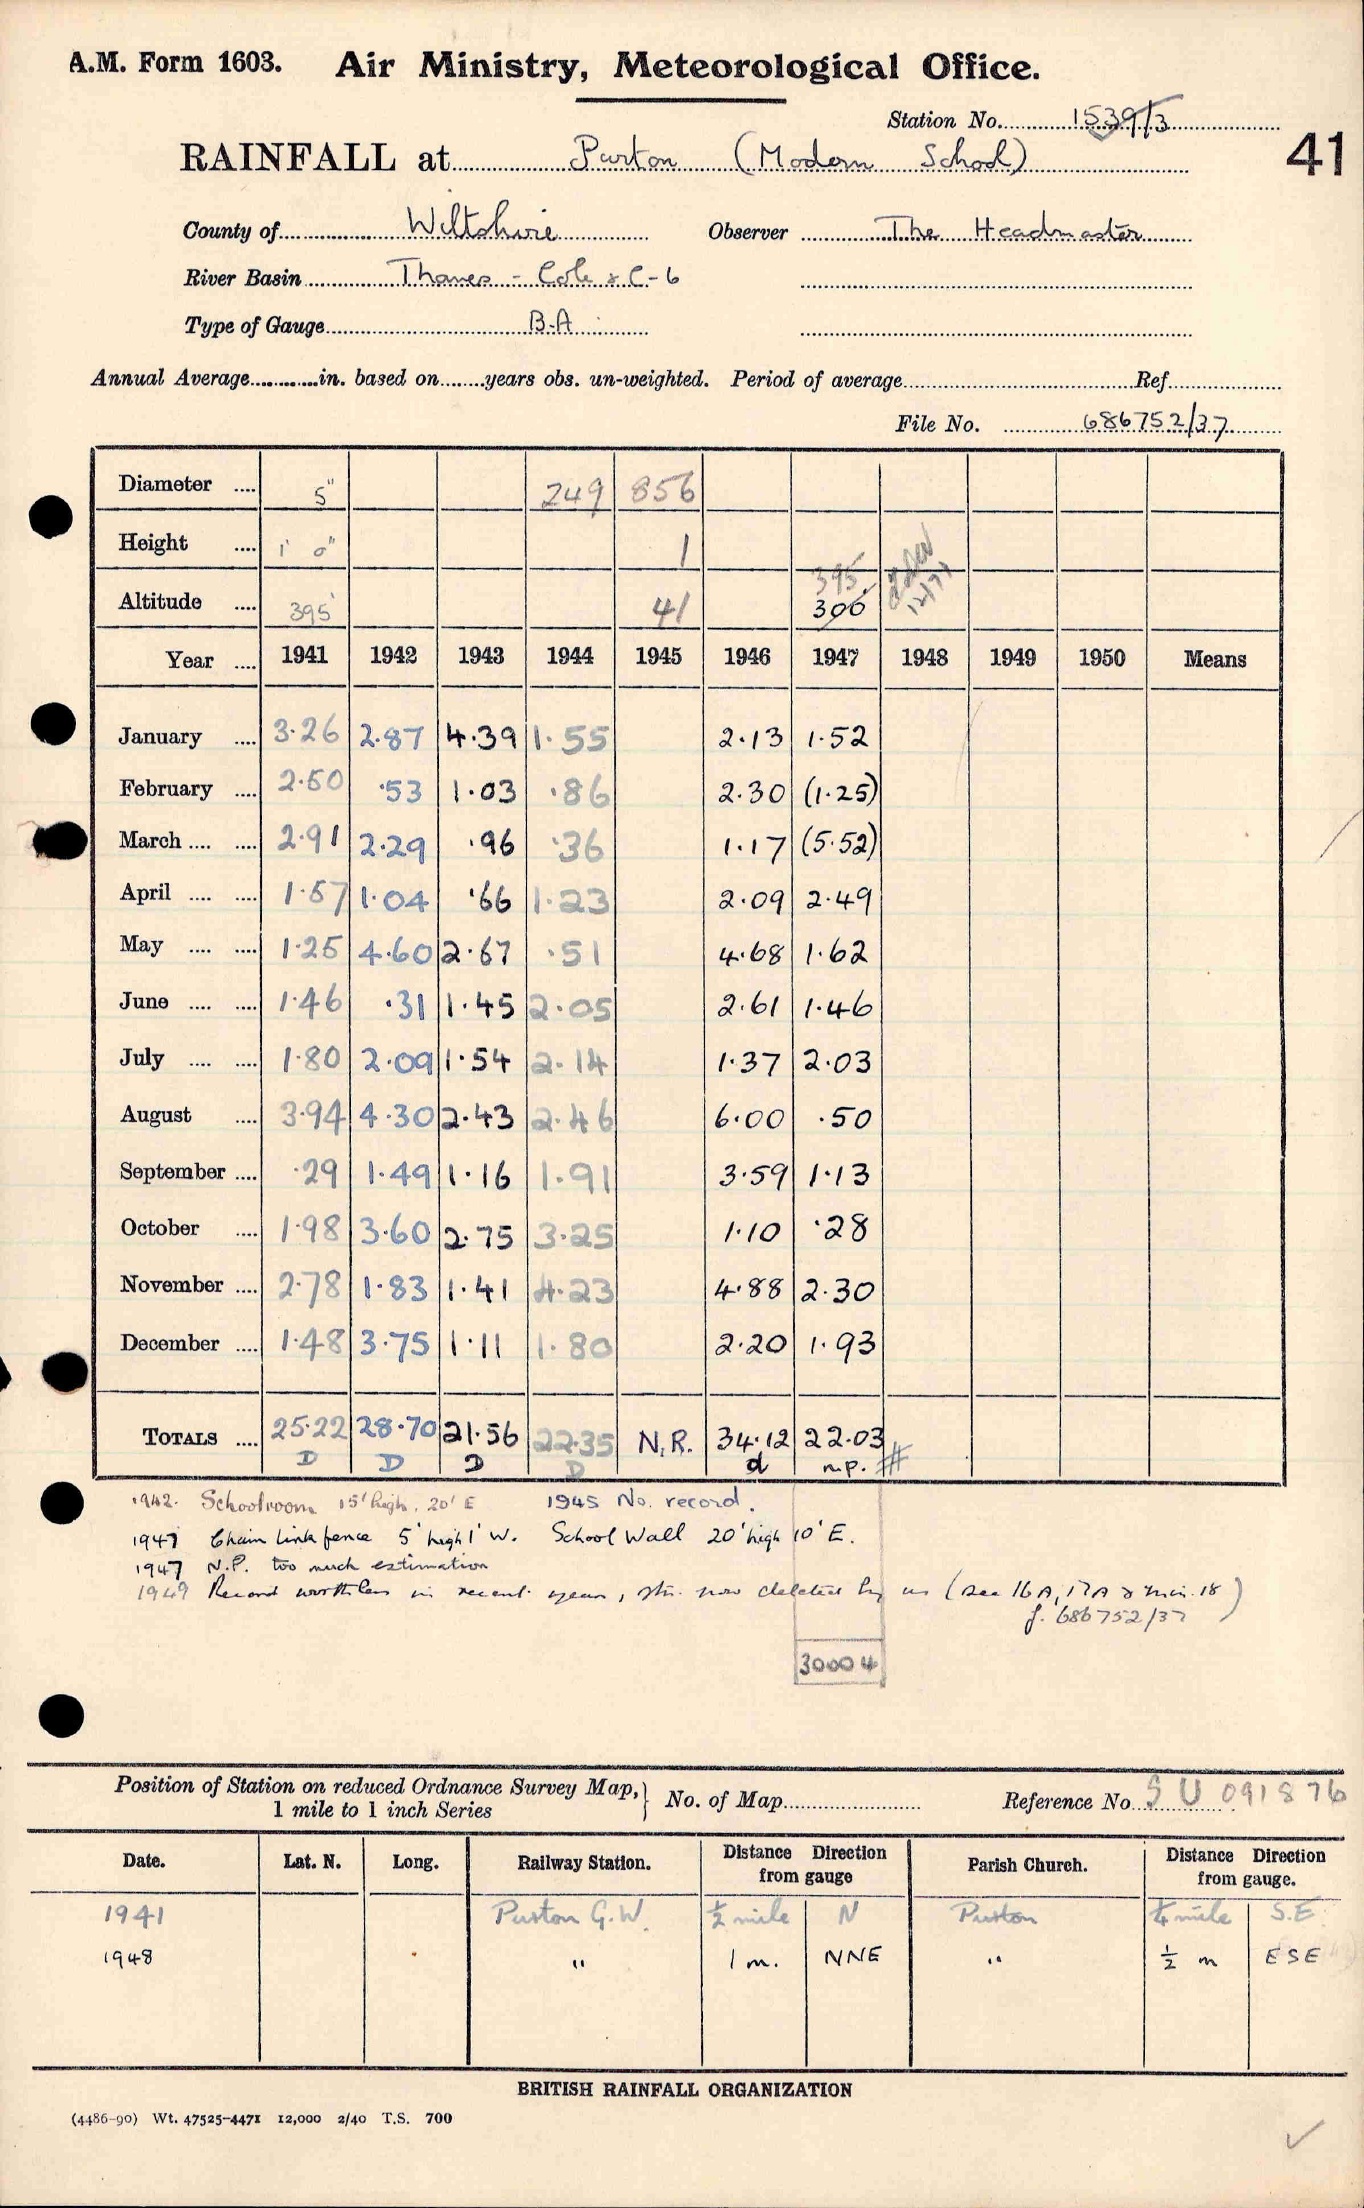 A.M. Form 1603. Air Ministry, Meteorological Office.
Station No. 1539/3
41
RAINFALL at Purton (Modern School)
County of Wiltshire Observer The Headmaster
River Basin Thames - Cole & C-6
Type of Gauge B.A
Annual Average in. based on years obs. un-weighted. Period of average Ref
File No. 686752/37
Diameter 5" 249 856
Height 1' 0" 1
Altitude 395' 41 395 300 12/71
Year 1941 1942 1943 1944 1945 1946 1947 1948 1949 1950 Means
January 3.26 2.87 4.39 1.55 2.13 1.52
February 2.50 .53 1.03 .86 2.30 (1.25)
March 2.91 2.29 .96 .36 1.17 (5.52)
April 1.57 1.04 .66 1.23 2.09 2.49
May 1.25 4.60 2.67 .51 4.68 1.62
June 1.46 .31 1.45 2.05 2.61 1.46
July 1.80 2.09 1.54 2.14 1.37 2.03
August 3.94 4.30 2.43 2.46 6.00 .50
September .29 1.49 1.16 1.91 3.59 1.13
October 1.98 3.60 2.75 3.25 1.10 .28
November 2.78 1.83 1.41 4.23 4.88 2.30
December 1.48 3.75 1.11 1.80 2.20 1.93
TOTALS 25.22 28.70 21.56 22.35 N.R. 34.12 22.03
D D D D d n.p. #
1942. Schoolroom 15' high, 20' E 1945 No. record.
1947 Chain link fence 5' high 1' W. School Wall 20' high 10' E.
1947 N.P. too much estimation
1949 Record worthless in recent years, stn. now deleted by us (see 16A, 17A & min. 18)
f. 686752/37
30004
Position of Station on reduced Ordnance Survey Map, No. of Map Reference No. SU 091876
1 mile to 1 inch Series
Date. Lat. N. Long. Railway Station. Distance from gauge Direction Parish Church. Distance from gauge. Direction
1941 Purton G.W. ½ mile N Purton ¼ mile S.E.
1948 " 1 m. NNE " ½ m ESE
BRITISH RAINFALL ORGANIZATION
(4486-90) Wt. 47525-4471 12,000 2/40 T.S. 700